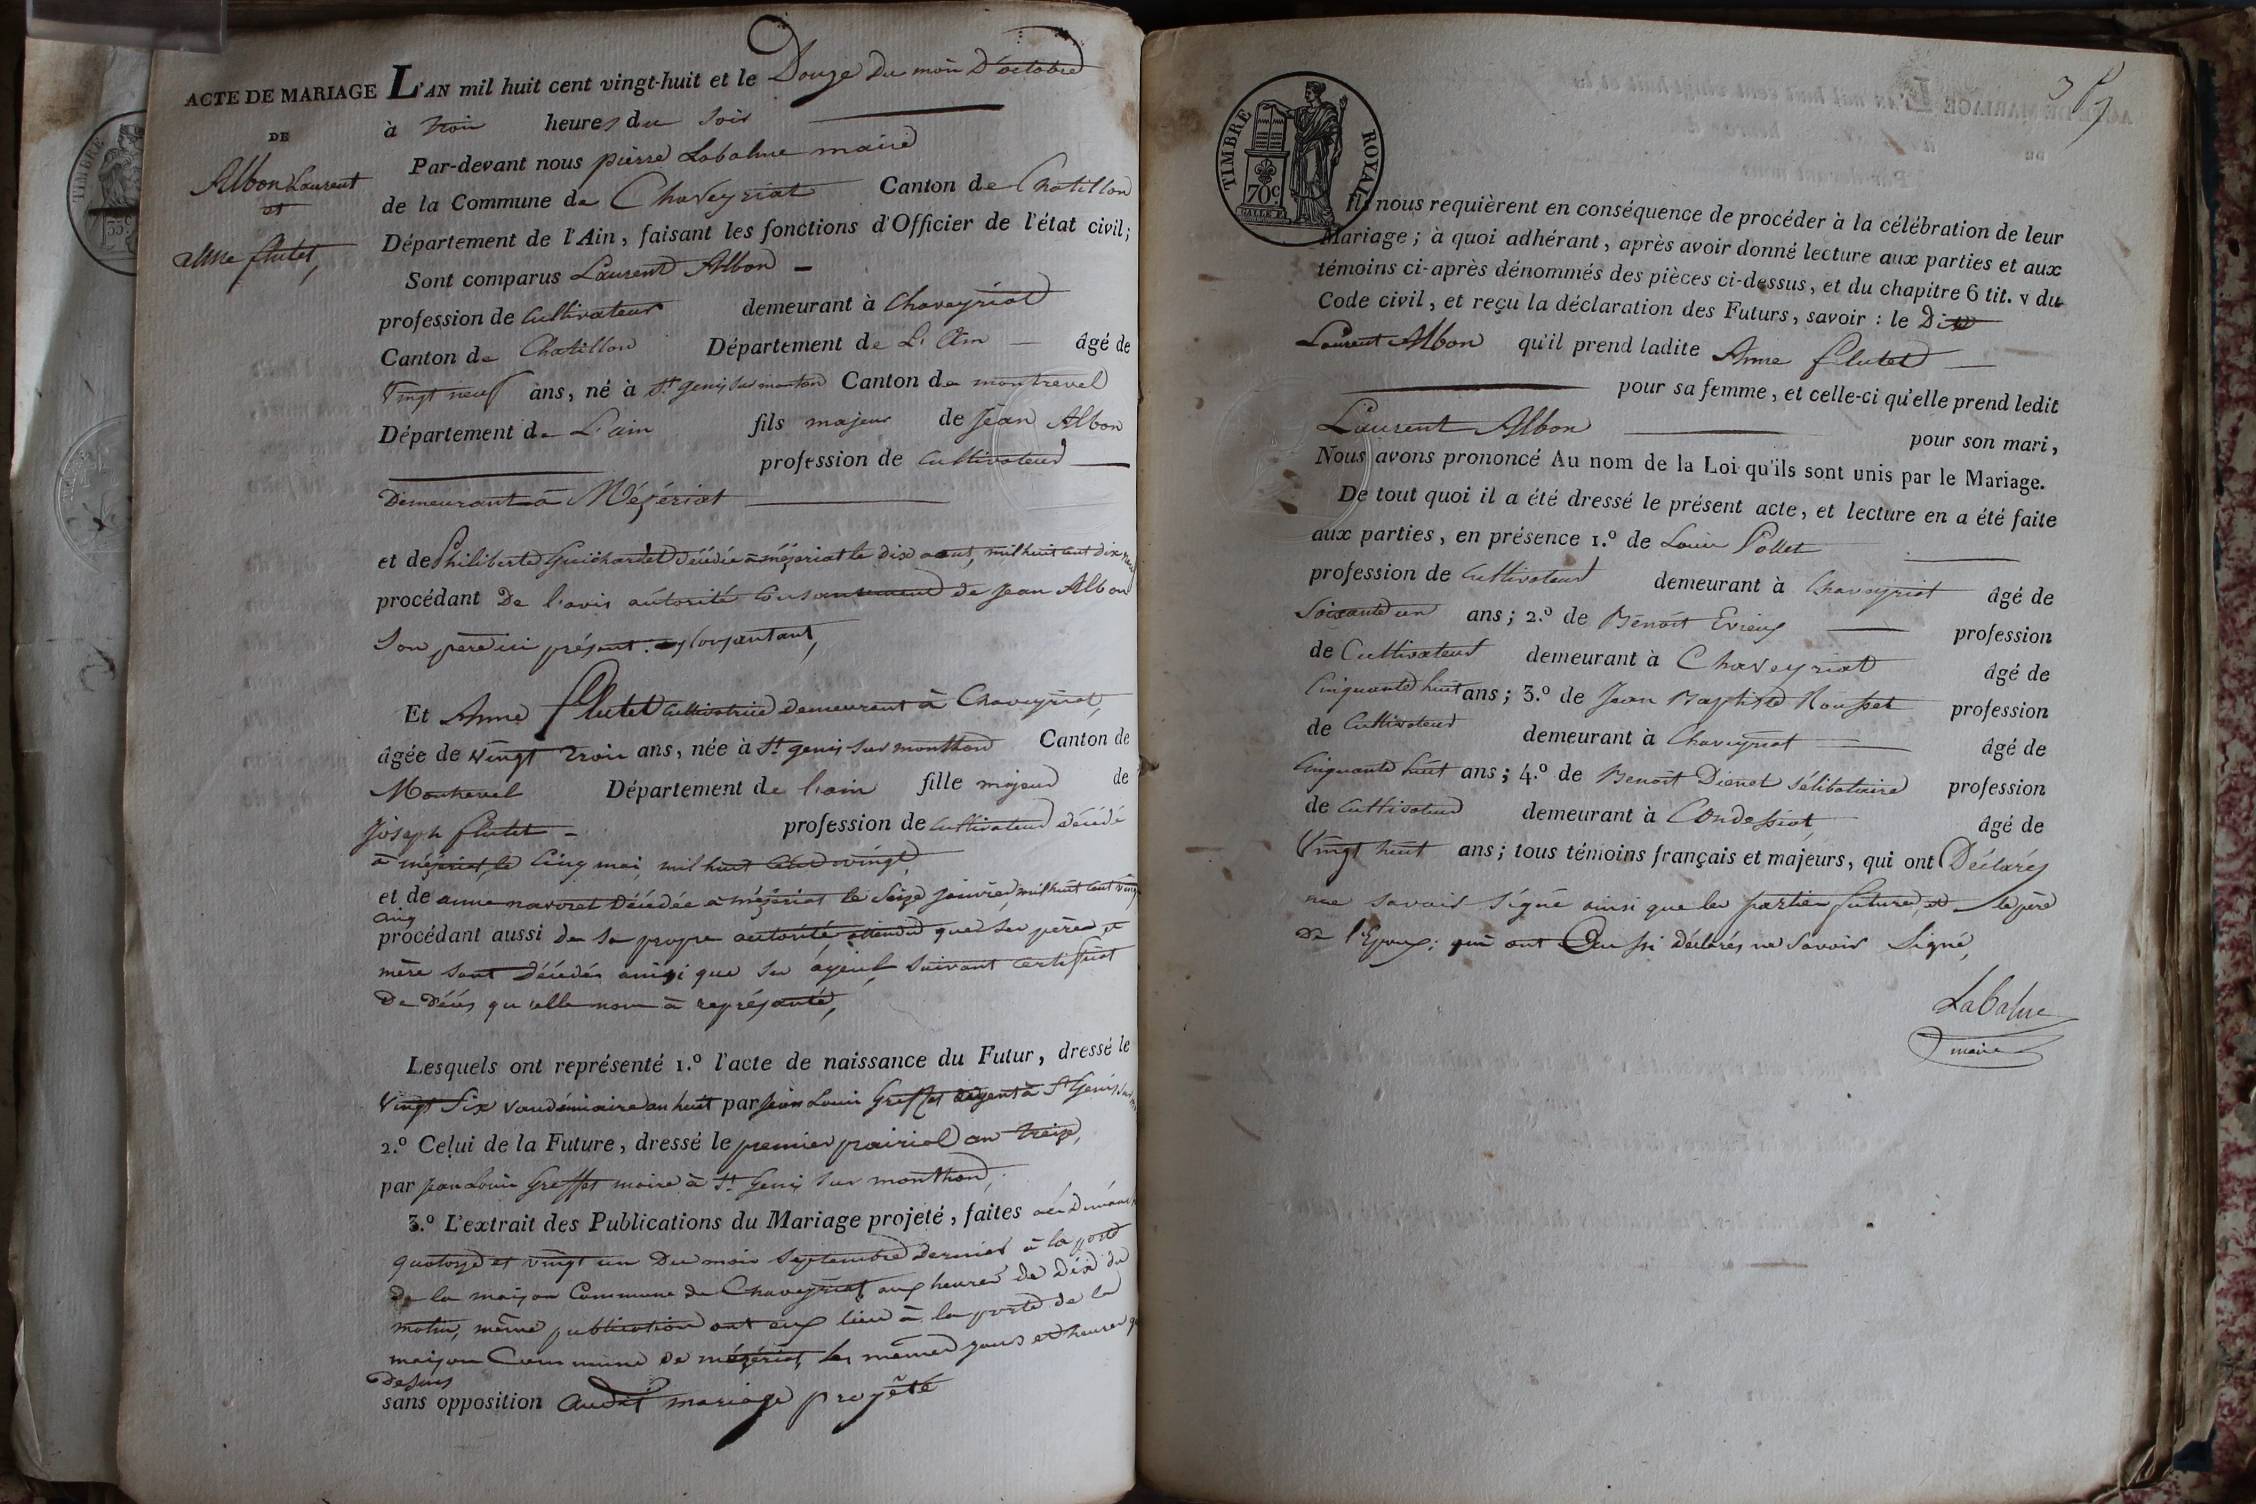 ACTE DE MARIAGE
DE
Albon Laurent
et
anne flutet,
L'AN mil huit cent vingt-huit et le Douze du mois D'octobre
à trois heures du soir
Par-devant nous pierre Labalme maire
de la Commune de Chaveyriat Canton de Chatillon
Département de l'Ain, faisant les fonctions d'Officier de l'état civil;
Sont comparus Laurent Albon
profession de Cultivateur demeurant à Chaveyriat
Canton de Chatillon Département de L'Ain âgé de
Vingt neuf ans, né à St. genis sur manton Canton de montrevel
Département de L'ain fils majeur de Jean Albon
profession de Cultivateur
Demeurant à Mézériat
et de Philiberte Guichardet Décédée à mézériat le dix aout, mil huit cent dix neuf
procédant De l'avis autorité Consantement de Jean Albon
Son père ici présent: et Consantant,
Et Anne flutet Cultivatrice demeurent à Chaveyriat,
âgée de Vingt trois ans, née à St. genis sur monthon Canton de
Montrevel Département de l'ain fille majeur de
Joseph flutet profession de Cultivateur décédé
à mézériat le Cinq mai mil huit Cent vingt,
et de anne navoret Décédée à mézériat le Seize janvier, mil huit Cent vingt
cinq
procédant aussi de sa propre autorité, attendu que ses père et
mère sont Décédés ainsi que ses ayeuls, suivant Certificat
De Décés qu'elle nous à représanté,
Lesquels ont représenté 1.º l'acte de naissance du Futur, dressé le
Vingt Six Vandémiaire an huit par Jean Louis Greffet agent à St Genis sur
2.º Celui de la Future, dressé le premier prairiel an treize,
par Jean Louis Greffet maire à St. Genis sur monthon,
3.º L'extrait des Publications du Mariage projeté, faites
quatorze et vingt un Du mois Septembre Dernier à la porte
de la maison Commune de Chaveyriat, aux heures de Dix du
matin, même publication ont eux lieu à la porte de la
maison Commune de mézériat, les mêmes jours et heures que
Dessus
sans opposition audit mariage projeté
TIMBRE ROYAL
70ᶜ
Ils nous requièrent en conséquence de procéder à la célébration de leur
Mariage; à quoi adhérant, après avoir donné lecture aux parties et aux
témoins ci-après dénommés des pièces ci-dessus, et du chapitre 6 tit. v du
Code civil, et reçu la déclaration des Futurs, savoir: le Dit
Laurent Albon qu'il prend ladite Anne flutet
pour sa femme, et celle-ci qu'elle prend ledit
Laurent Albon pour son mari,
Nous avons prononcé Au nom de la Loi qu'ils sont unis par le Mariage.
De tout quoi il a été dressé le présent acte, et lecture en a été faite
aux parties, en présence 1.º de Louis Pollet
profession de Cultivateur demeurant à Chaveyriat âgé de
Soixante un ans; 2.º de Benoit Evieux profession
de Cultivateur demeurant à Chaveyriat âgé de
Cinquante huit ans; 3.º de Jean Baptiste Rousset profession
de Cultivateur demeurant à Chaveyriat âgé de
Cinquante huit ans; 4.º de Benoit Dienet Sélibataire profession
de Cultivateur demeurant à Condessiat âgé de
Vingt huit ans; tous témoins français et majeurs, qui ont Déclarés
ne savoir signé ainsi que les parties future, et le père
de l'Epoux: qui ont Aussi Déclarés ne Savoir Signé,
Labalme
maire